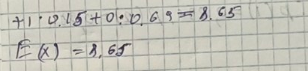 +1·0,15+0·0,69=8,65
E(x)=8,65